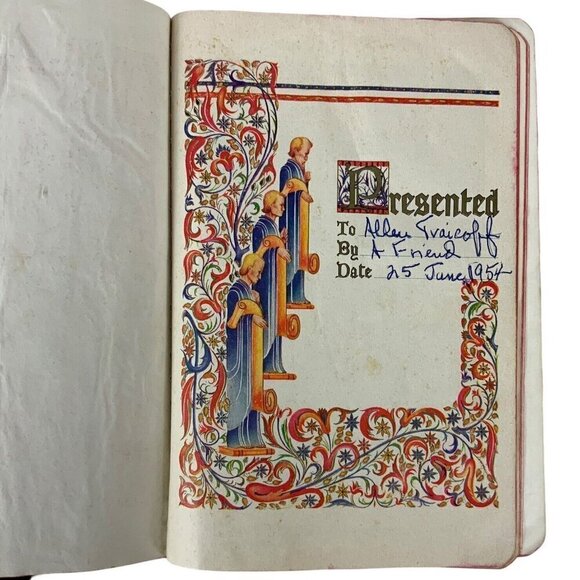 Presented
To Allen Traicoff
By A Friend
Date 25 June, 1954